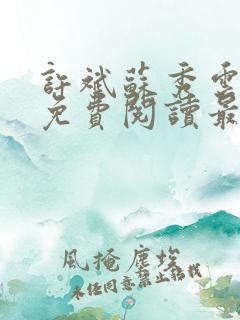 許斌蘇秀雲
免費閱讀最
風掩塵埃
未經同意禁止轉載